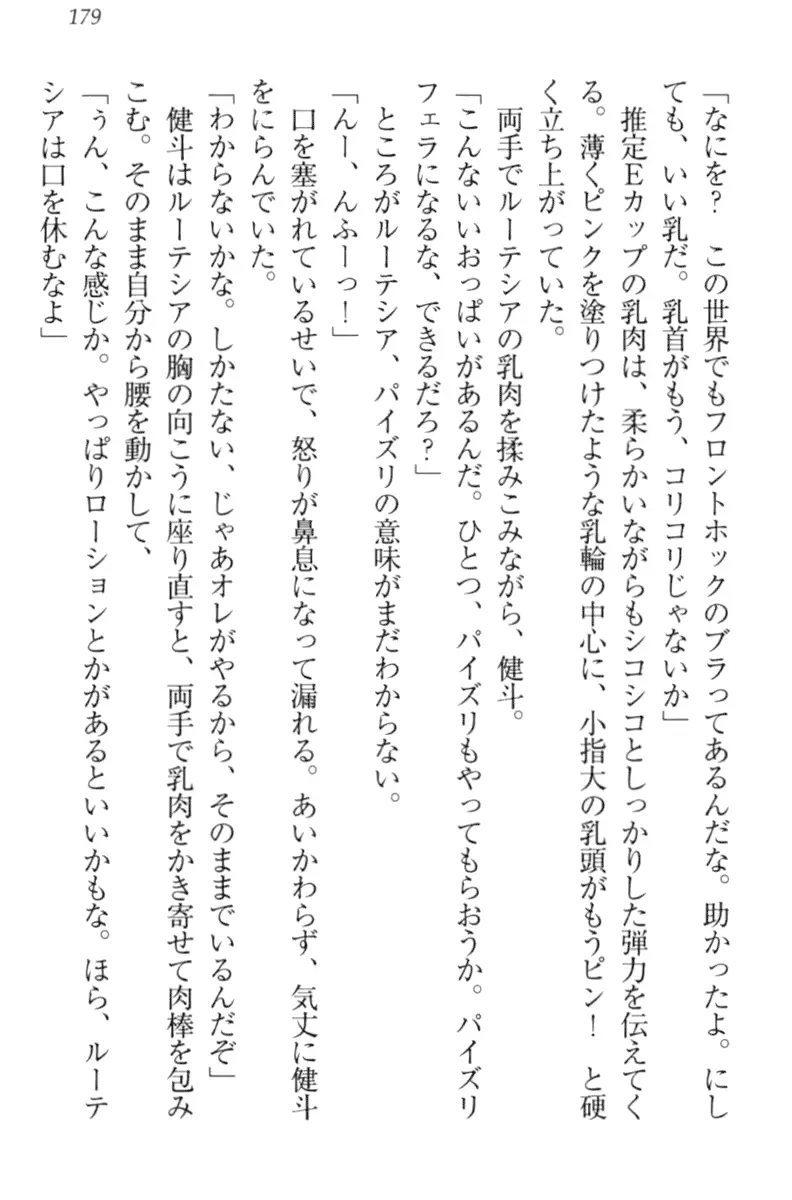 179
「なにを?　この世界でもフロントホックのブラってあるんだな。助かったよ。にし
ても、いい乳だ。乳首がもう、コリコリじゃないか」
　推定Eカップの乳肉は、柔らかいながらもシコシコとしっかりした弾力を伝えてく
る。薄くピンクを塗りつけたような乳輪の中心に、小指大の乳頭がもうピン!　と硬
く立ち上がっていた。
　両手でルーテシアの乳肉を揉みこみながら、健斗。
「こんないいおっぱいがあるんだ。ひとつ、パイズリもやってもらおうか。パイズリ
フェラになるな、できるだろ?」
　ところがルーテシア、パイズリの意味がまだわからない。
「んー、んふーっ!」
　口を塞がれているせいで、怒りが鼻息になって漏れる。あいかわらず、気丈に健斗
をにらんでいた。
「わからないかな。しかたない、じゃあオレがやるから、そのままでいるんだぞ」
　健斗はルーテシアの胸の向こうに座り直すと、両手で乳肉をかき寄せて肉棒を包み
こむ。そのまま自分から腰を動かして、
「うん、こんな感じか。やっぱりローションとかがあるといいかもな。ほら、ルーテ
シアは口を休むなよ」